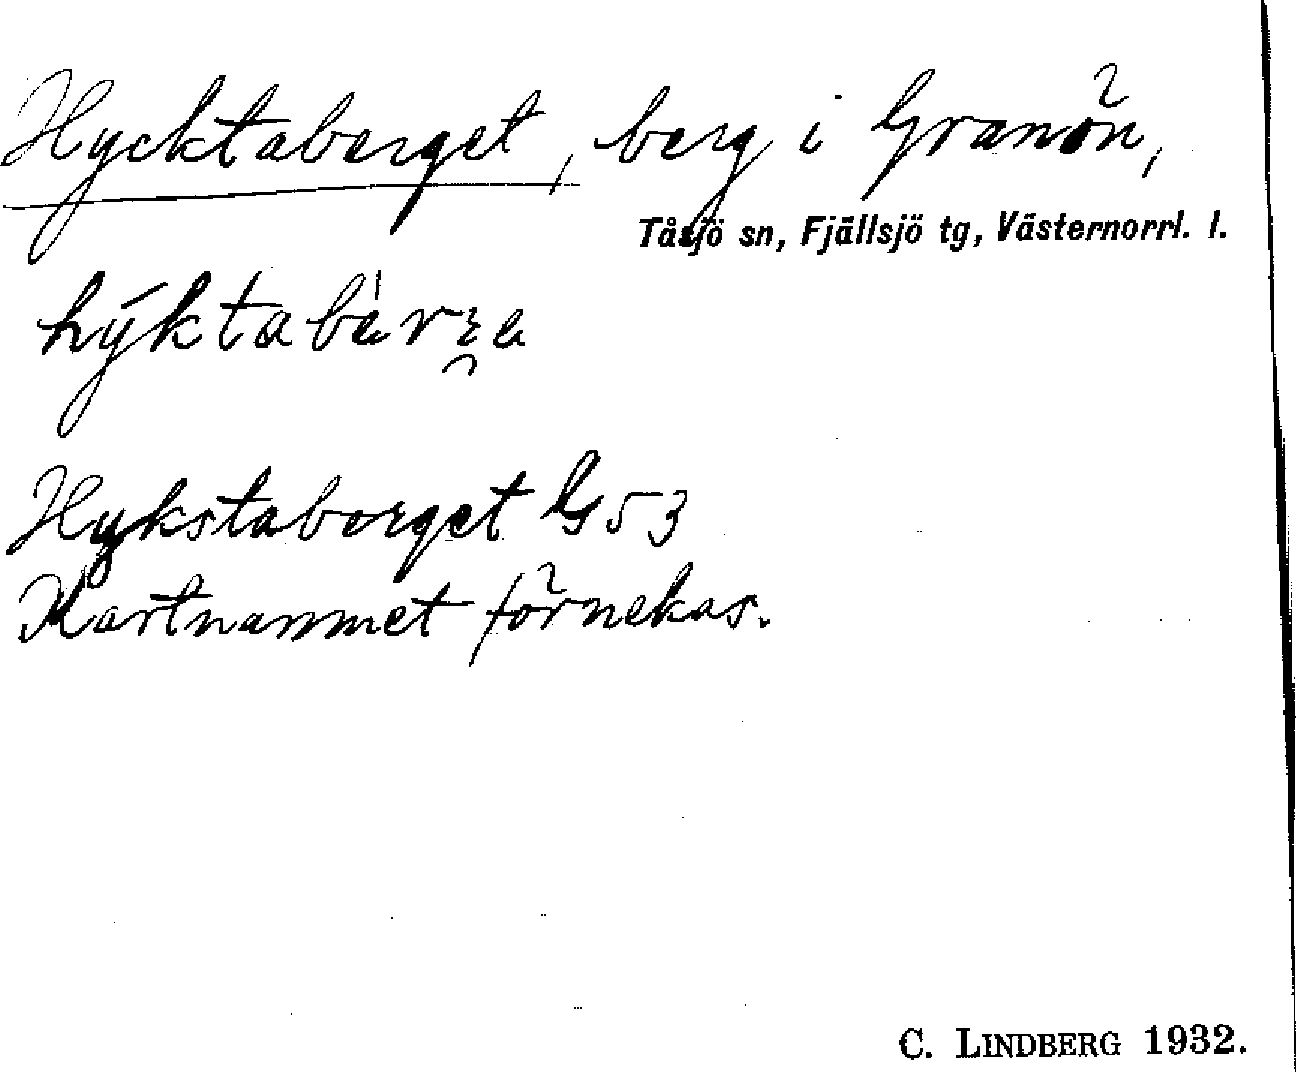 Hycktaberget, berg i Granön,
Tåsjö sn, Fjällsjö tg, Västernorrl. l.
Hykstaberget G53
Kartnamnet förnekas.
C. LINDBERG 1932.